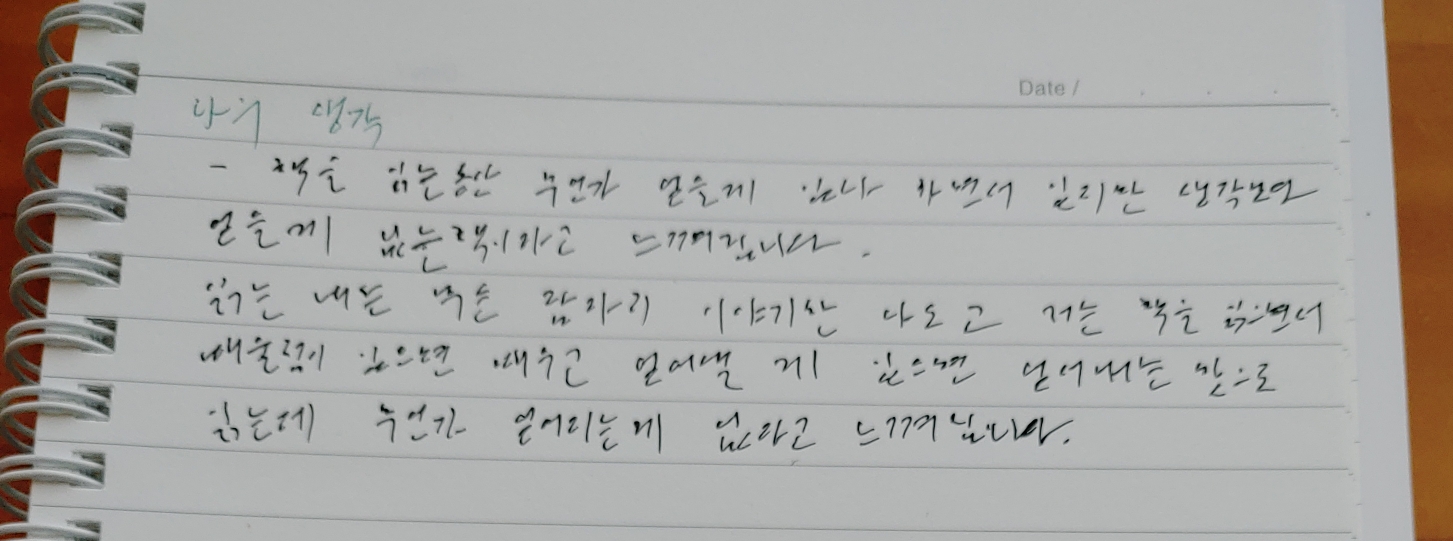 Date /
나의 생각
- 책을 읽는동안 무언가 얻을게 있나 하면서 읽지만 생각보다
얻을게 없는책이라고 느껴집니다.
읽는 내는 먹는 잠자리 이야기만 나오고 저는 책을 읽으면서
배울점이 있으면 배우고 얻어낼 게 있으면 얻어내는 맛으로
읽는데 무언가 얻어지는게 없다고 느껴집니다.